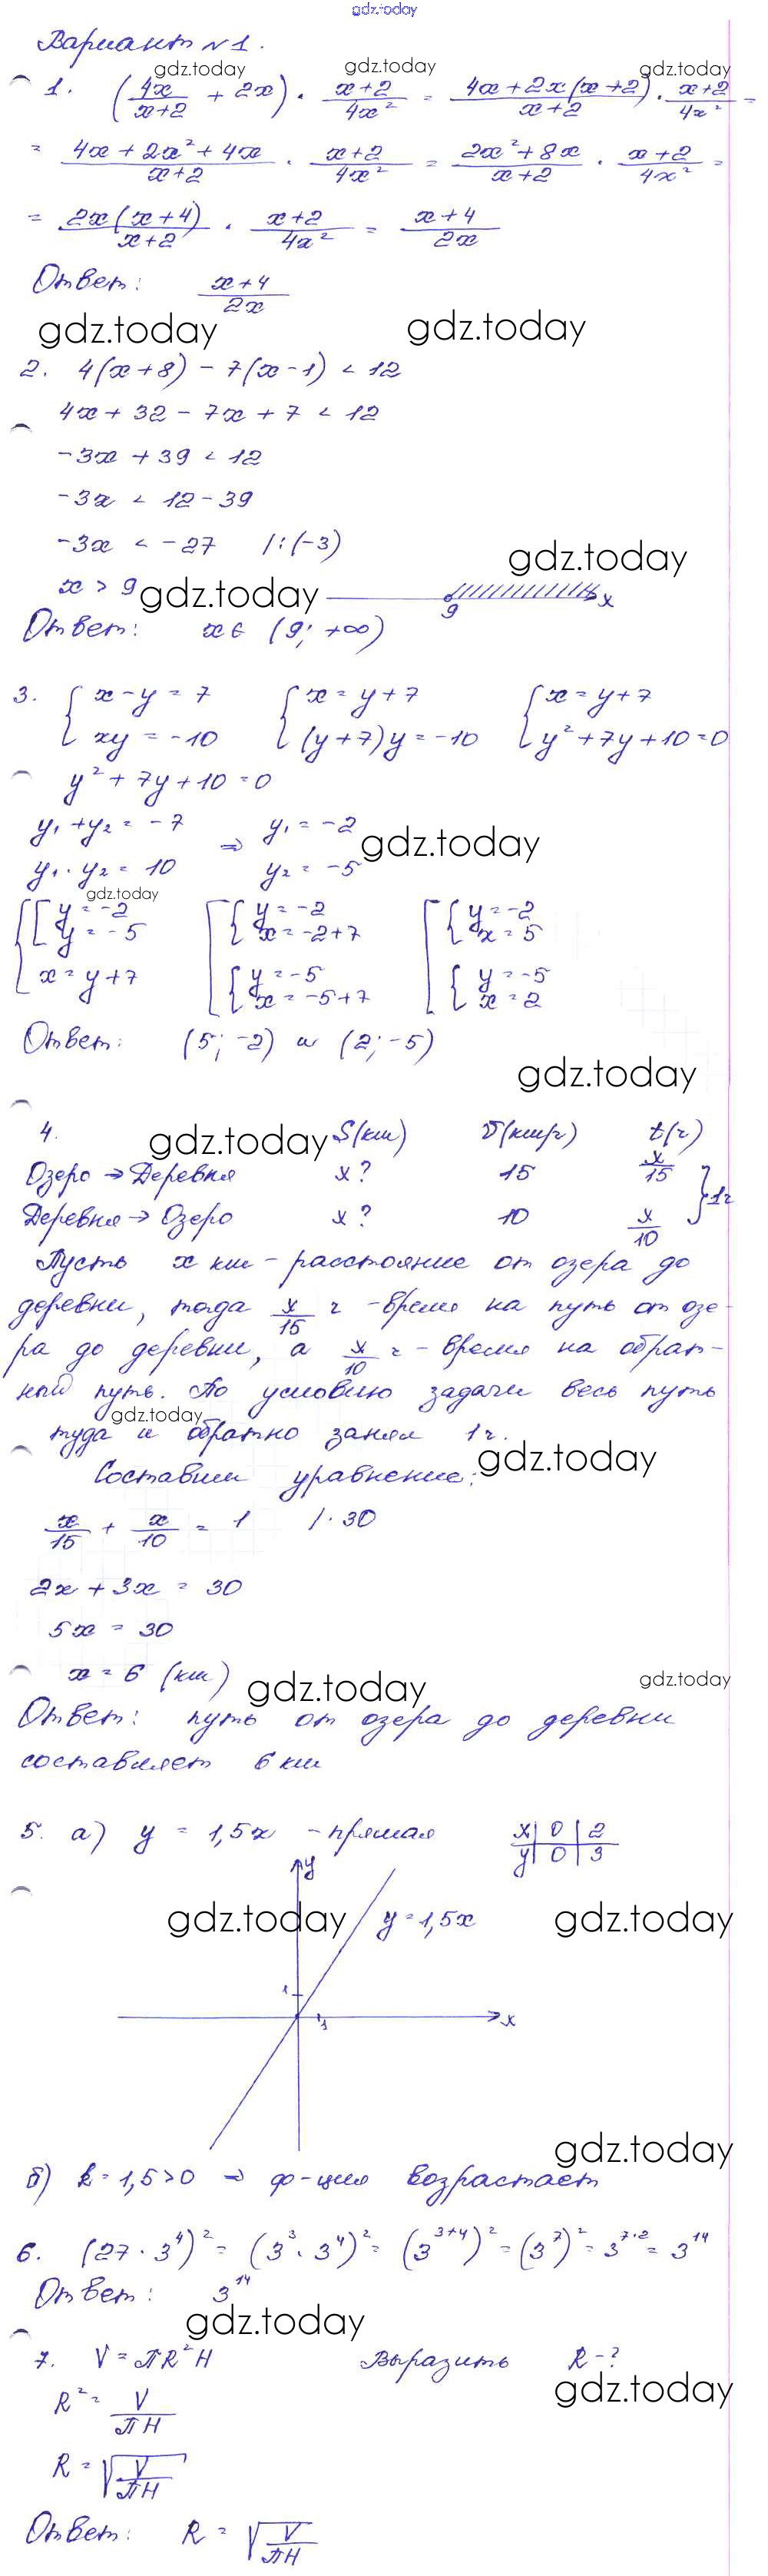 gdz.today
Вариант №1.
gdz.today gdz.today gdz.today
1. (4x/(x+2) + 2x) · (x+2)/(4x²) = (4x+2x(x+2))/(x+2) · (x+2)/(4x²) =
= (4x+2x²+4x)/(x+2) · (x+2)/(4x²) = (2x²+8x)/(x+2) · (x+2)/(4x²) =
= (2x(x+4))/(x+2) · (x+2)/(4x²) = (x+4)/(2x)
Ответ: (x+4)/(2x)
gdz.today gdz.today
2. 4(x+8) - 7(x-1) < 12
4x + 32 - 7x + 7 < 12
-3x + 39 < 12
-3x < 12 - 39
-3x < -27 /:(-3)
gdz.today
x > 9 gdz.today 9 x
Ответ: x∈ (9; +∞)
3. { x-y = 7 { x = y+7 { x = y+7
{ xy = -10 { (y+7)y = -10 { y²+7y+10=0
y²+7y+10=0
y₁+y₂ = -7 ⇒ y₁ = -2 gdz.today
y₁·y₂ = 10 y₂ = -5
gdz.today
{ [ y = -2 [ { y = -2 [ { y = -2
[ y = -5 { x = -2+7 { x = 5
x = y+7 { y = -5 { y = -5
{ x = -5+7 { x = 2
Ответ: (5; -2) и (2; -5)
gdz.today
4. gdz.today S(км) v(км/ч) t(ч)
Озеро → Деревня x? 15 x/15 } 1ч
Деревня → Озеро x? 10 x/10
Пусть x км - расстояние от озера до
деревни, тогда x/15 ч - время на путь от озе-
ра до деревни, а x/10 ч - время на обрат-
ный путь. По условию задачи весь путь
gdz.today
туда и обратно занял 1 ч.
Составим уравнение: gdz.today
x/15 + x/10 = 1 /·30
2x + 3x = 30
5x = 30
x = 6 (км) gdz.today gdz.today
Ответ: путь от озера до деревни
составляет 6 км
5. а) y = 1,5x - прямая x | 0 | 2
y | 0 | 3
y
gdz.today y = 1,5x gdz.today
1
x
1
gdz.today
б) k = 1,5>0 ⇒ ф-ция возрастает
6. (27·3⁴)² = (3³·3⁴)² = (3³⁺⁴)² = (3⁷)² = 3⁷·² = 3¹⁴
Ответ: 3¹⁴
gdz.today
7. V = πR²H Выразить R - ?
gdz.today
R² = V/(πH)
R = √(V/(πH))
Ответ: R = √(V/(πH))